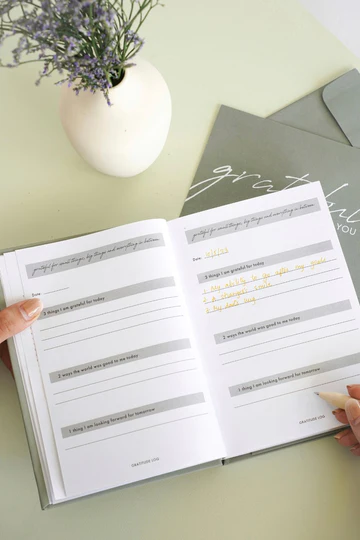 grateful
YOU
grateful for small things, big things and everything in between
Date:
3 things I am grateful for today
2 ways the world was good to me today
1 thing I am looking forward for tomorrow
GRATITUDE LOG
grateful for small things, big things and everything in between
Date:
3 things I am grateful for today
My ability to go after my goals
2 ways the world was good to me today
1 thing I am looking forward for tomorrow
GRATITUDE LOG